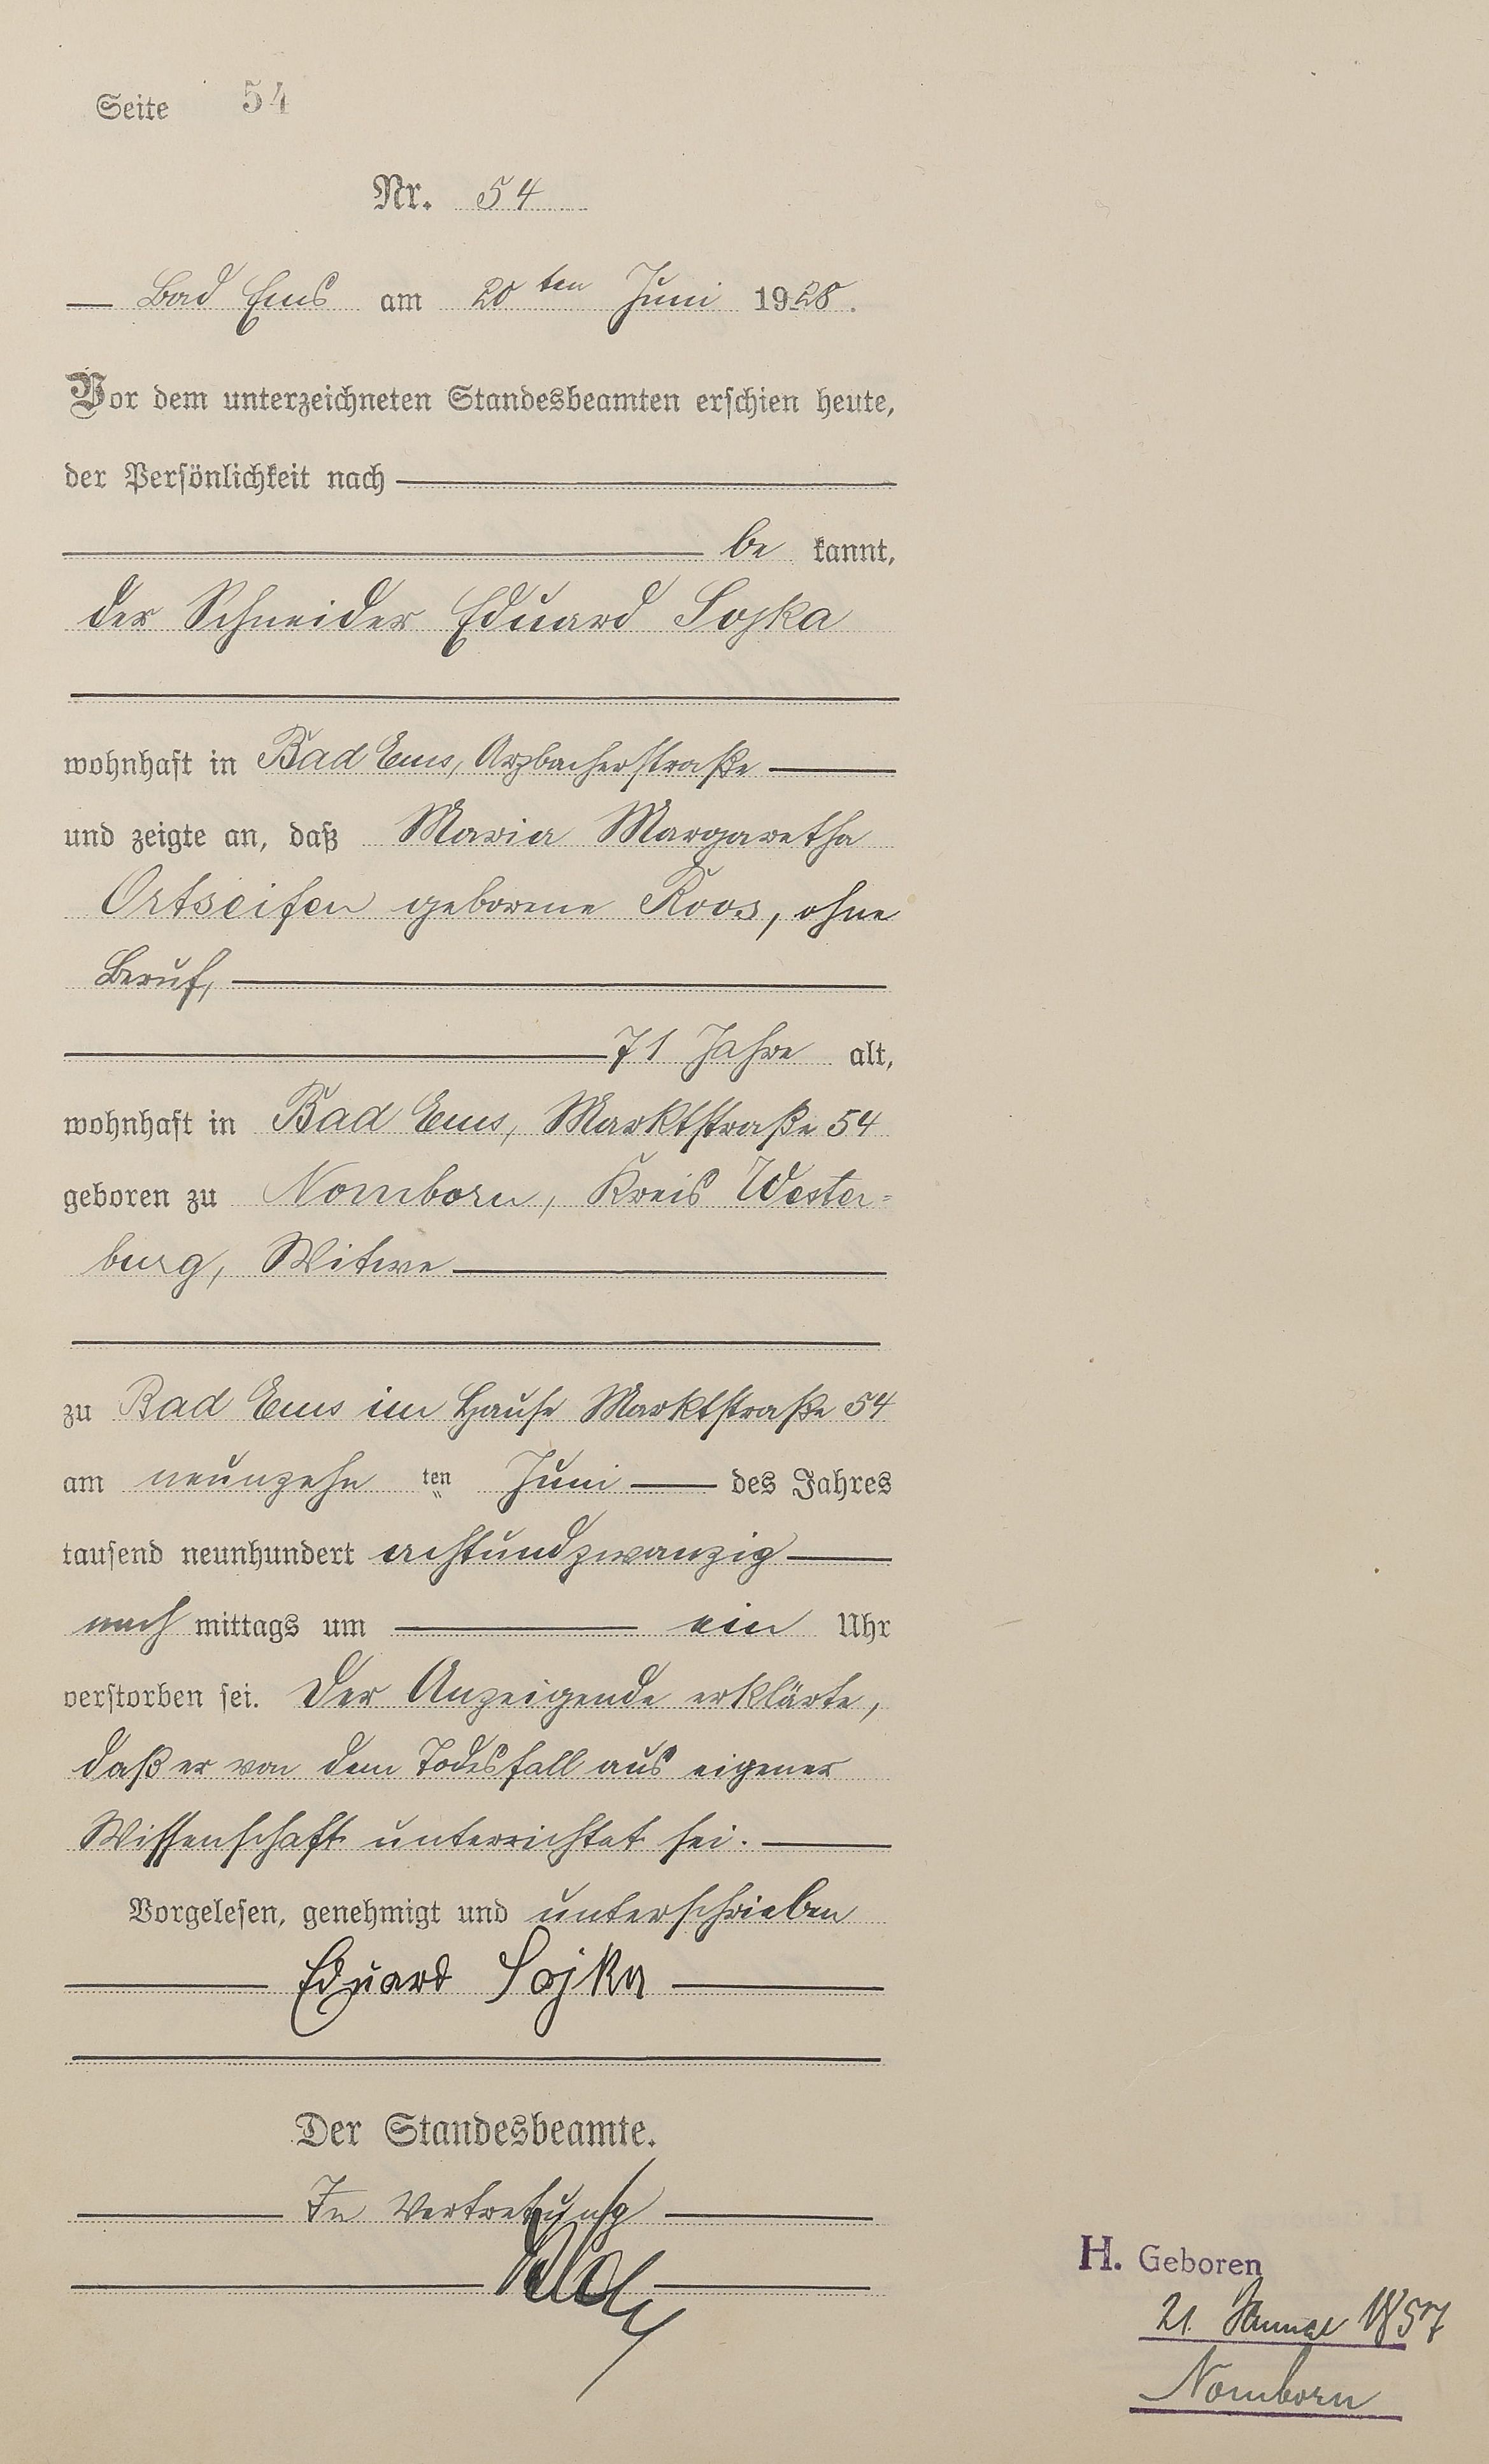 Seite 54
Nr. 54
Bad Ems am 20ten Juni 1928.
Vor dem unterzeichneten Standesbeamten erschien heute,
der Persönlichkeit nach
be kannt,
der Schneider Eduard Sojka
wohnhaft in Bad Ems, Arzbacherstraße
und zeigte an, daß Maria Margaretha
Ortseifen geborene Roos, ohne
Beruf,
71 Jahre alt,
wohnhaft in Bad Ems, Marktstraße 54
geboren zu Nomborn, Kreis Wester=
burg, Witwe
zu Bad Ems im Hause Marktstraße 54
am neunzehn ten Juni des Jahres
tausend neunhundert achtundzwanzig
nach mittags um ein Uhr
verstorben sei. Der Anzeigende erklärte,
daß er von dem Todesfall aus eigener
Wissenschaft unterrichtet sei.
Vorgelesen, genehmigt und unterschrieben
Eduard Sojka
Der Standesbeamte.
In Vertretung
H. Geboren
21. Januar 1857
Nomborn